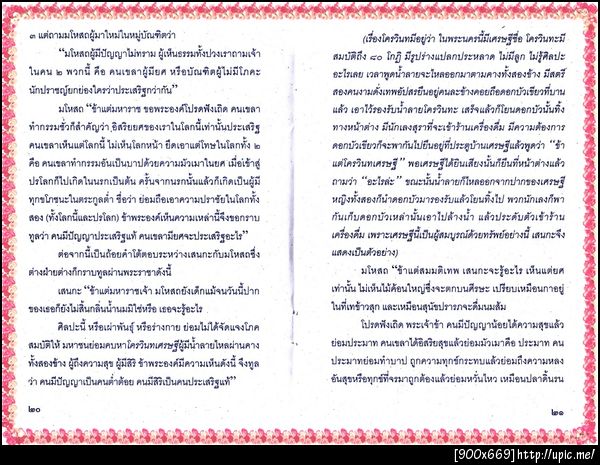 ๓ แต่ถามมโหสถผู้มาใหม่ในหมู่บัณฑิตว่า
"มโหสถผู้มีปัญญาไม่ทราม ผู้เห็นธรรมทั้งปวงเราถามเจ้า
ในคน ๒ พวกนี้ คือ คนเขลาผู้มียศ หรือบัณฑิตผู้ไม่มีโภคะ
นักปราชญ์ยกย่องใครว่าประเสริฐกว่ากัน"
มโหสถ "ข้าแต่มหาราช ขอพระองค์โปรดฟังเถิด คนเขลา
ทำกรรมชั่วก็สำคัญว่า อิสริยยศของเราในโลกนี้เท่านั้นประเสริฐ
คนเขลาเห็นแต่โลกนี้ ไม่เห็นโลกหน้า ยึดเอาแต่โทษในโลกทั้ง ๒
คือ คนเขลาทำกรรมอันเป็นบาปด้วยความมัวเมาในยศ เมื่อเข้าสู่
ปรโลกก็ไปเกิดในนรกเป็นต้น ครั้นจากนรกนั้นแล้วก็เกิดเป็นผู้มี
ทุกขโทษนะในตระกูลต่ำ ชื่อว่า ย่อมถือเอาความปราชัยในโลกทั้ง
สอง (ทั้งโลกนี้และปรโลก) ข้าพระองค์เห็นความเหล่านี้จึงขอกราบ
ทูลว่า คนมีปัญญาประเสริฐแท้ คนเขลามียศจะประเสริฐอะไร"
ต่อจากนี้เป็นถ้อยคำโต้ตอบระหว่างเสนกะกับมโหสถซึ่ง
ต่างฝ่ายต่างก็กราบทูลต่อพระราชาดังนี้
เสนกะ "ข้าแต่มหาราชเจ้า มโหสถยังเด็กแม้จนวันนี้ปาก
ของเธอก็ยังไม่สิ้นกลิ่นน้ำนมมิใช่หรือ เธอจะรู้อะไร
ศิลปะนี้ หรือเผ่าพันธุ์ หรือร่างกาย ย่อมไม่ได้จัดแจงโภค
สมบัติให้ มหาชนย่อมคบหาโควินทเศรษฐีผู้มีน้ำลายไหลผ่านคาง
ทั้งสองข้าง ผู้ถึงความสุข ผู้มีสิริ ข้าพระองค์มีความเห็นดังนี้ จึงทูล
ว่า คนมีปัญญาเป็นคนต่ำต้อย คนมีสิริเป็นคนประเสริฐแท้"
๒๐
(เรื่องโครวินทมีอยู่ว่า ในพระนครนี้มีเศรษฐีชื่อ โครวินทะมี
สมบัติถึง ๘๐ โกฏิ มีรูปร่างแปลกประหลาด ไม่มีลูก ไม่รู้ศิลปะ
อะไรเลย เวลาพูดน้ำลายจะไหลออกมาตามคางทั้งสองข้าง มีสตรี
สองคนงามดั่งเทพอัปสรยืนอยู่คนละข้างคอยถือดอกบัวเขียวที่บาน
แล้ว เอาไว้รองรับน้ำลายโครวินทะ เสร็จแล้วก็โยนดอกบัวนั้นทิ้ง
ทางหน้าต่าง มีนักเลงสุราที่จะเข้าร้านเครื่องดื่ม มีความต้องการ
ดอกบัวเขียวก็จะพากันไปยืนอยู่ที่ประตูบ้านเศรษฐีแล้วพูดว่า "ข้า
แต่โครวินทเศรษฐี" พอเศรษฐีได้ยินเสียงนั้นก็ยืนที่หน้าต่างแล้ว
ถามว่า "อะไรล่ะ" ขณะนั้นน้ำลายก็ไหลออกจากปากของเศรษฐี
หญิงทั้งสองก็นำดอกบัวมารองรับแล้วโยนทิ้งไป พวกนักเลงก็พา
กันเก็บดอกบัวเหล่านั้นเอาไปล้างน้ำ แล้วประดับตัวเข้าร้าน
เครื่องดื่ม เพราะเศรษฐีนี้เป็นผู้สมบูรณ์ด้วยทรัพย์อย่างนี้ เสนกะจึง
แสดงเป็นตัวอย่าง)
มโหสถ "ข้าแต่สมมติเทพ เสนกะจะรู้อะไร เห็นแต่ยศ
เท่านั้น ไม่เห็นไม้ค้อนใหญ่ซึ่งจะตกบนศีรษะ เปรียบเหมือนกาอยู่
ในที่เทข้าวสุก และเหมือนสุนัขปรารภจะดื่มนมส้ม
โปรดฟังเถิด พระเจ้าข้า คนมีปัญญาน้อยได้ความสุขแล้ว
ย่อมประมาท คนเขลาได้อิสริยสุขแล้วย่อมมัวเมาคือ ประมาท คน
ประมาทย่อมทำบาป ถูกความทุกข์กระทบแล้วย่อมถึงความหลง
อันสุขหรือทุกข์ที่จรมาถูกต้องแล้วย่อมหวั่นไหว เหมือนปลาดิ้นรน
๒๑
[900x669]http://upic.me/